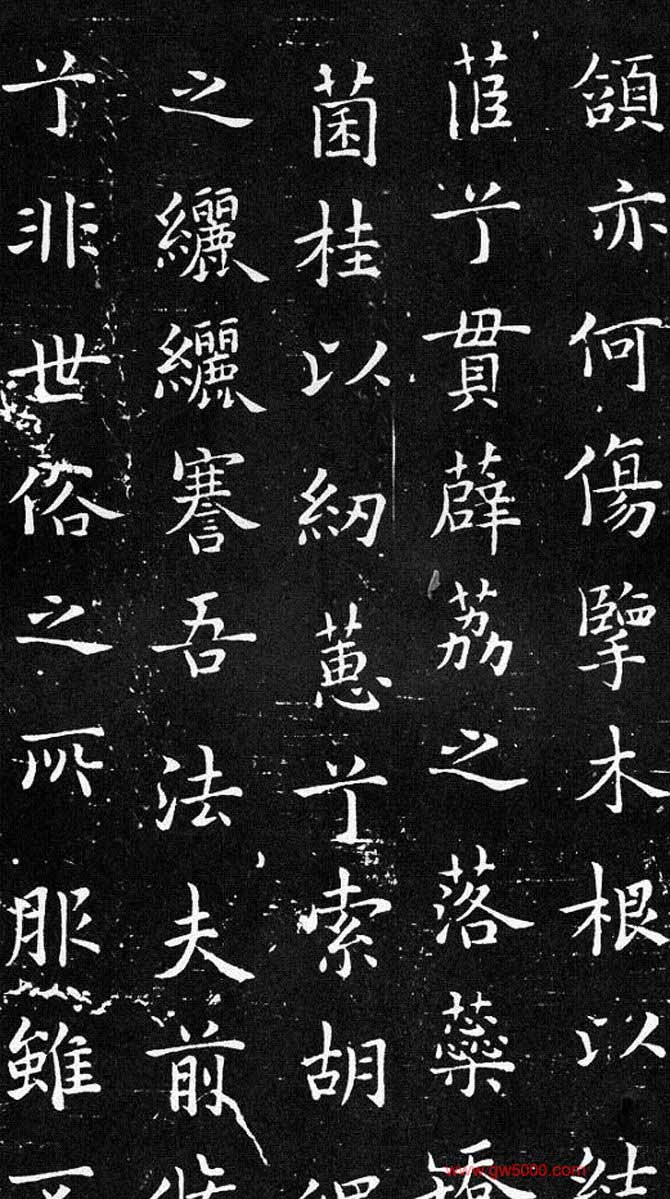 頷亦何傷擥木根以結
茝兮貫薜荔之落蘂矯
菌桂以紉蕙兮索胡繩
之纚纚謇吾法夫前脩
兮非世俗之所服雖不
www.gw5000.com